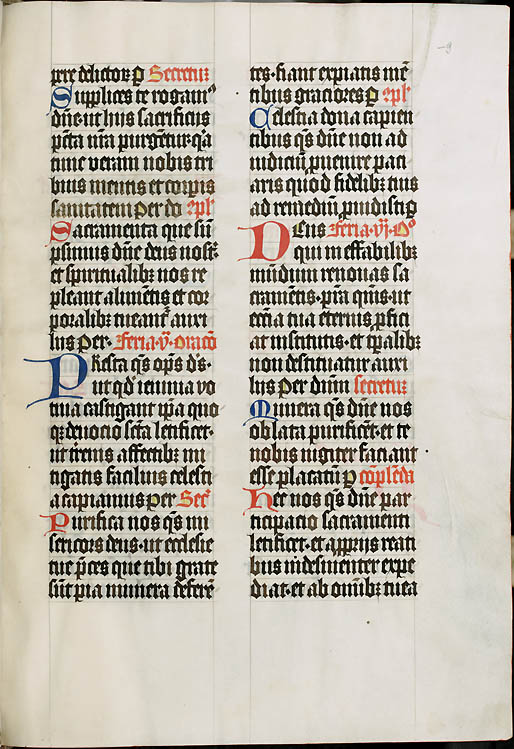 pere delictoꝝ p Secretū
Supplices te rogamꝰ
dn̄e·ut hiis sacrificiis
pctā nr̄a purgētur·q̄a
tunc veram nobis tri
buis mentis et corpīs
sanitatem per do 9pl̄
Sacramenta que sū
psimus dn̄e deus nostꝛ̄
et spiritualibꝫ nos re
pleant alimētis et cor
poralibꝫ tueant᷑ auxi
lius per· Feria·v̄·oracō
Presta qs̄ opꝰs ds̄·
ut q̄d ieiunia vo
tiua castigant ip̄a quo
qꝫ deuocio sc̄ta letificet·
ut terrenis affectibꝫ mi
tigatis facilius celesti
a capiamus per Sec̄
Purifica nos qs̄ mi
sericors deus·ut ecclesie
tue p̄ces que tibi grate
sūt pia munera deferē
tes·fiant expiatis mē
tibus graciores p 9pl̄
Celestia dona capien
tibus qs̄ dn̄e non ad
iudiciū puenire paci
aris quod fidelibꝫ tuis
ad remediū prouidisti p
Deus Feria·vi·Oº
qui ineffabilibꝫ
mūdum renouas sa
cramētis·pr̄a qm̄s·ut
ecc̄ia tua eternis p̄fici
at institutis·et tp̄alibꝫ
non destituatur auxi
liis per dnm̄ secretū
Munera qs̄ dn̄e nos
oblata purificet·et te
nobis iugiter faciant
esse placatū p cōplēda
Hec nos qs̄ dn̄e par
ticipacio sacramenti
letificet·et a pprijs reati
bus indesinenter expe
diat·et ab om̄ibꝫ tuea